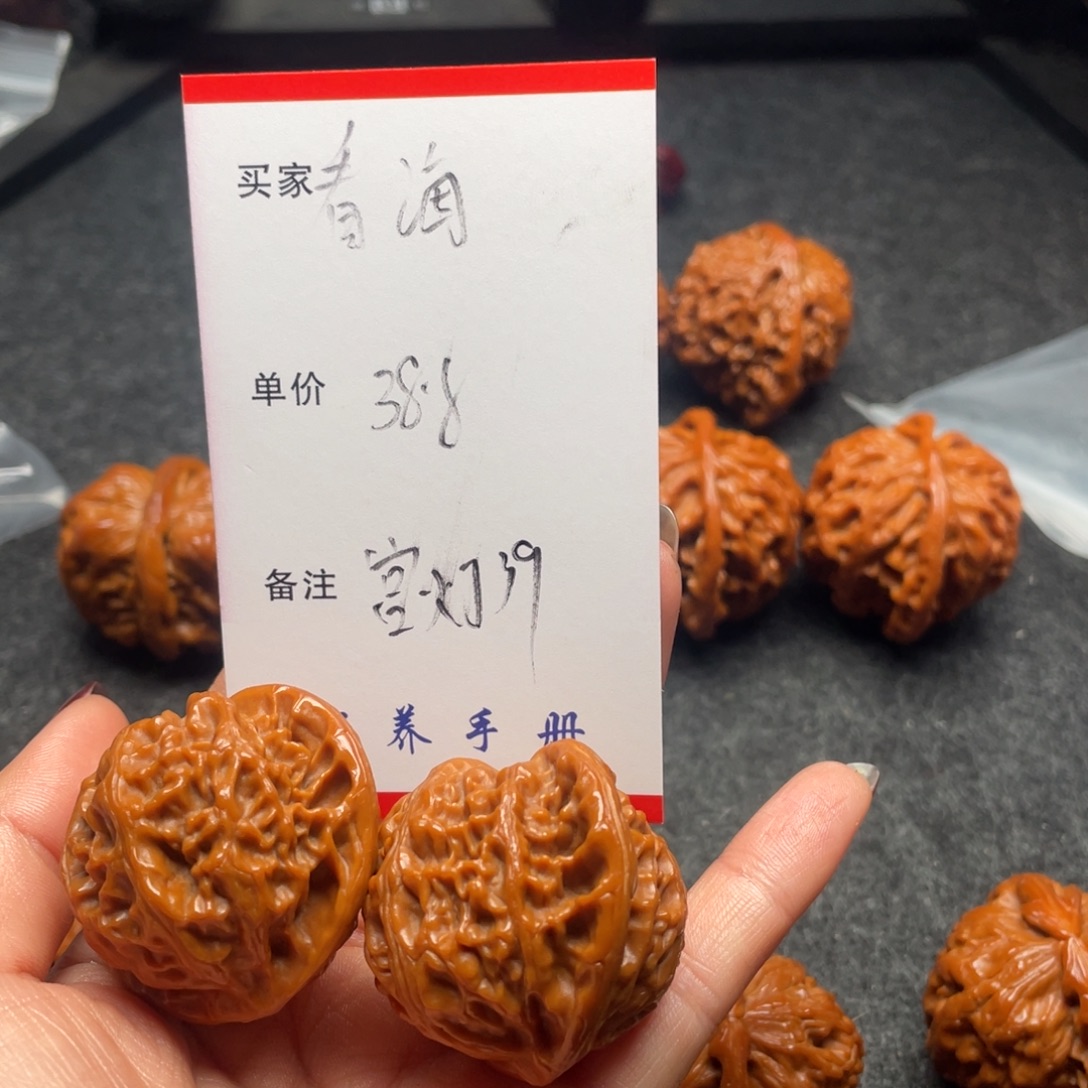 买家 青海
单价 38.8
备注 宫灯39
养手册